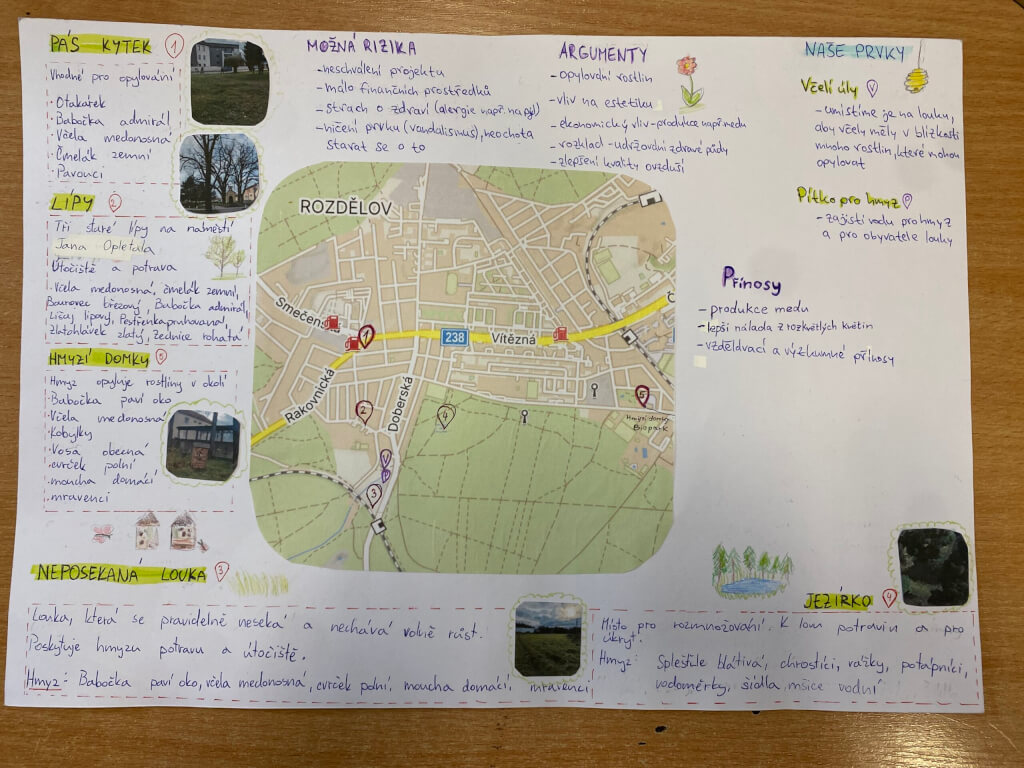 PÁS KYTEK 1
Vhodné pro opylování
· Otakárek
· Babočka admirál
· Včela medonosná
· Čmelák zemní
· Pavouci
LÍPY 2
Tři staré lípy na náměstí
Jana Opletala
Útočiště a potrava
· Včela medonosná, čmelák zemní,
Bourovec březový, Babočka admirál,
Lišaj lipový, Pestřenka pruhovaná,
zlatohlávek zlatý, zednice rohatá
HMYZÍ DOMKY 5
Hmyz opyluje rostliny v okolí
· Babočka paví oko
· Včela medonosná
· Kobylky
· Vosa obecná
· cvrček polní
· moucha domácí
· mravenci
MOŽNÁ RIZIKA
- neschválení projektu
- málo finančních prostředků
- strach o zdraví (alergie např. na pyl)
- ničení prvku (vandalismus), neochota
starat se o to
ARGUMENTY
- opylování rostlin
- vliv na estetiku
- ekonomický vliv - produkce např. medu
- rozklad - udržování zdravé půdy
- zlepšení kvality ovzduší
NAŠE PRVKY
Včelí úly V
- umístíme je na louku,
aby včely měly v blízkosti
mnoho rostlin, které mohou
opylovat
Pítko pro hmyz P
- zajistí vodu pro hmyz
a pro obyvatele louky
Přínosy
- produkce medu
- lepší nálada z rozkvětlých květin
- vzdělávací a výzkumné přínosy
ROZDĚLOV
Smečen
1
238
Vítězná
Č
Rakovnická
Doberská
2
4
5
Hmyzí domky
Biopark
V
P
3
NEPOSEKANÁ LOUKA 3
Louka, která se pravidelně neseká a nechává volně růst.
Poskytuje hmyzu potravu a útočiště.
Hmyz: Babočka paví oko, včela medonosná, cvrček polní, moucha domácí, mravenci
JEZÍRKO 4
Místo pro rozmnožování. K lovu potravin a pro
úkryt.
Hmyz: Splešťule blátivá, chrostíci, vážky, potápníci,
vodoměrky, šídla, mšice vodní